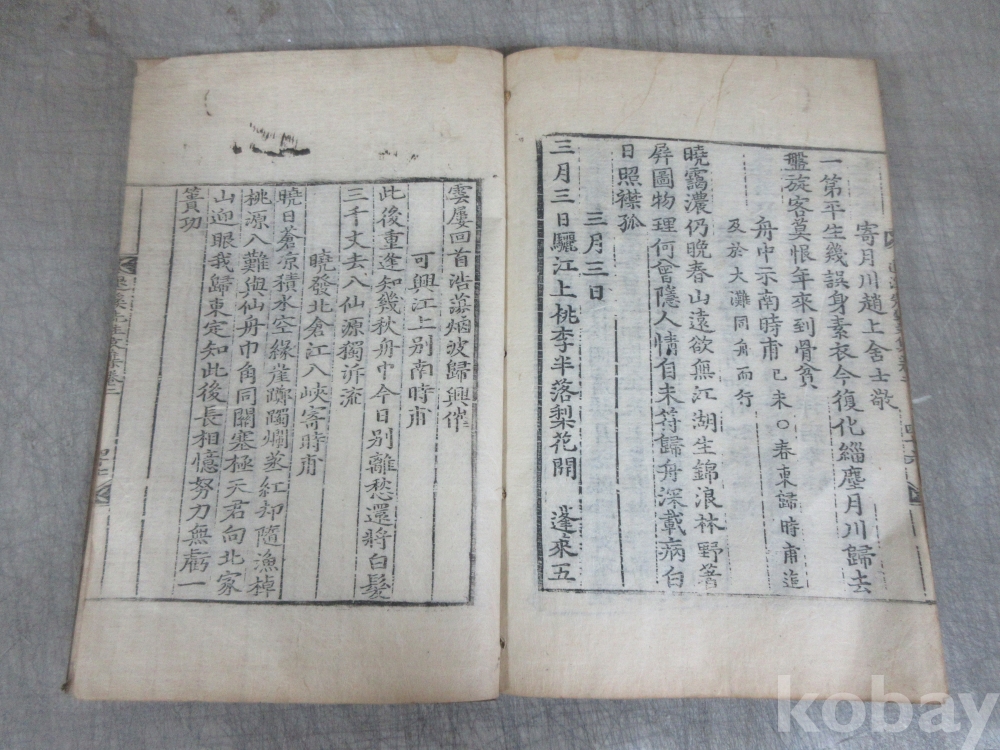 寄月川趙上舍士敬
一第平生幾誤身素衣今復化緇塵月川歸去
盤旋客莫恨年來到骨貧
舟中示南時甫己未〇春東歸時甫追
及於大灘同舟而行
曉靄濃仍晚春山遠欲無江湖生錦浪林野著
屛圖物理何曾隱人情自未符歸舟深載病白
日照襟孤
三月三日
三月三日驪江上桃李半落梨花開 蓬來五
雲屢回首浩蕩烟波歸興催
可興江上別南時甫
此後重逢知幾秋舟中今日別離愁還將白髮
三千丈去入仙源獨泝流
曉發北倉江入峽寄時甫
曉日蒼凉積水空緣崖躑躅爛蒸紅却隨漁棹
桃源入難與仙舟巾角同關塞極天君向北家
山迎眼我歸東定知此後長相憶努力無虧一
簣功
kobay